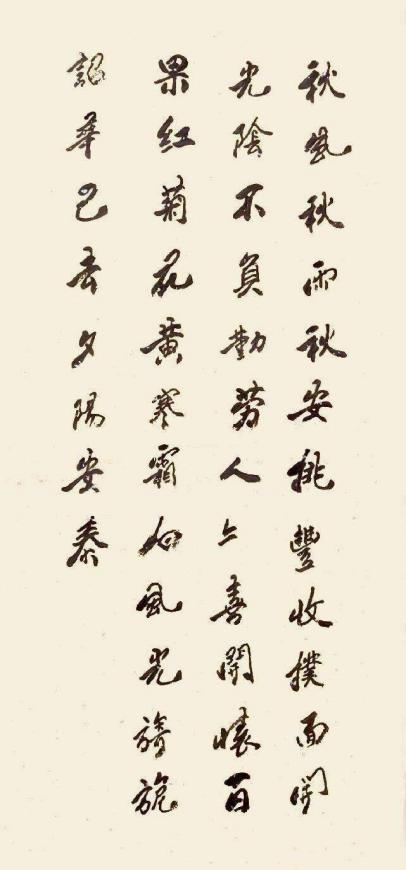 秋風秋雨秋安排豐收撲面開
光陰不負勤勞人喜開懷百
果紅菊花黃寒霜風光旖旎
韶華已去夕陽安泰